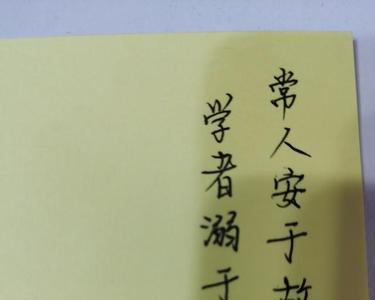 常人安于故
学者溺于